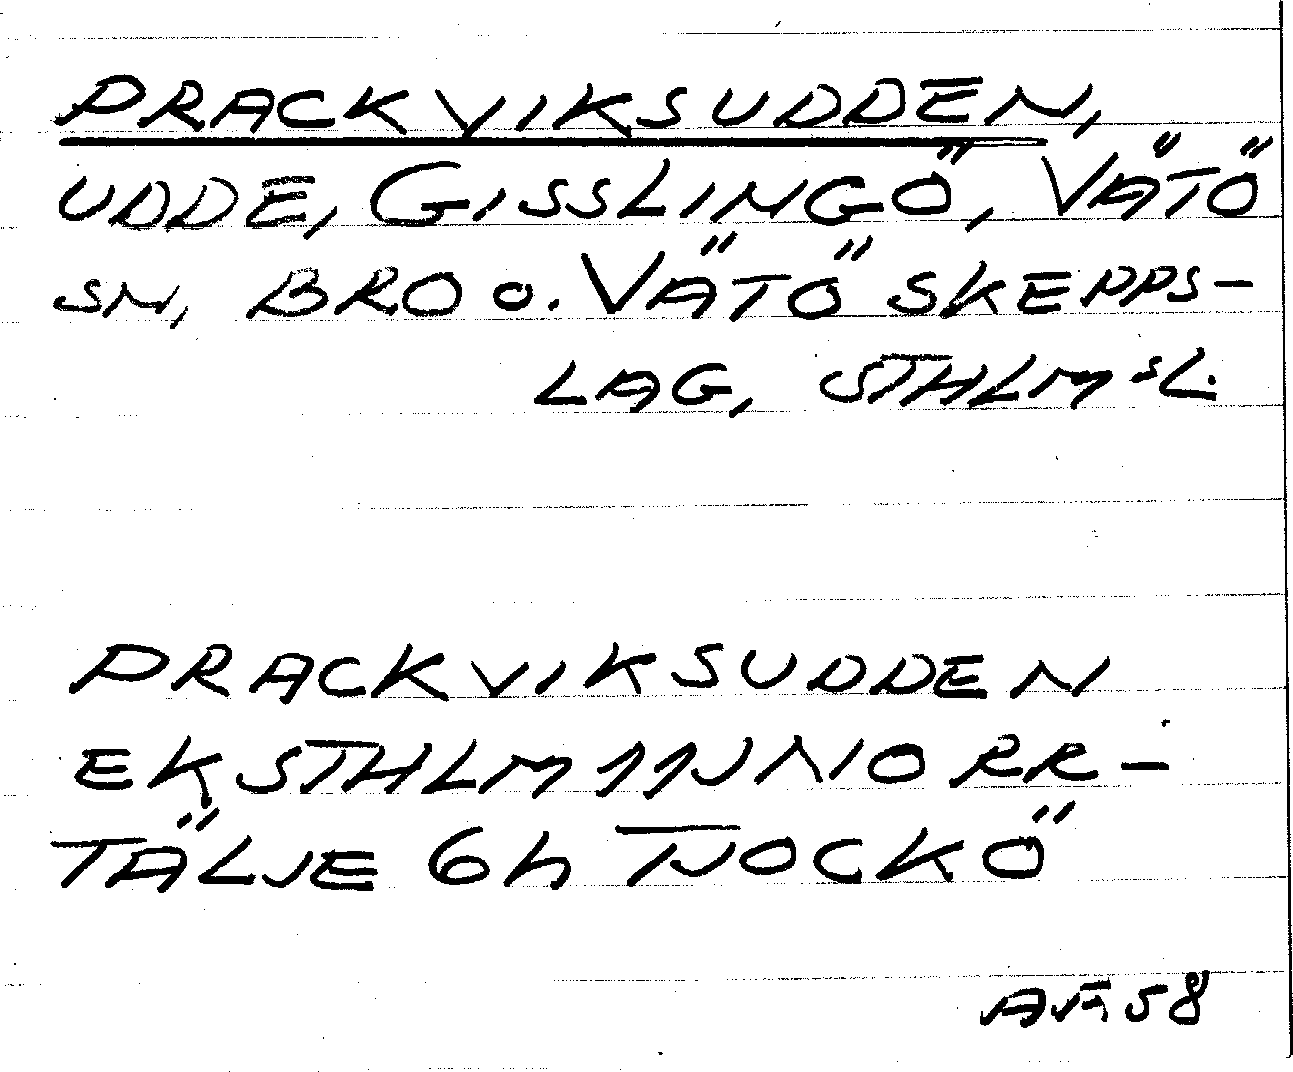 PRACKVIKSUDDEN,
UDDE, GISSLINGÖ, VÄTÖ
SN, BRO O. VÄTÖ SKEPPS-
LAG, STHLMSL.
PRACKVIKSUDDEN
EK STHLM 11J NORR-
TÄLJE 6h TJOCKÖ
58